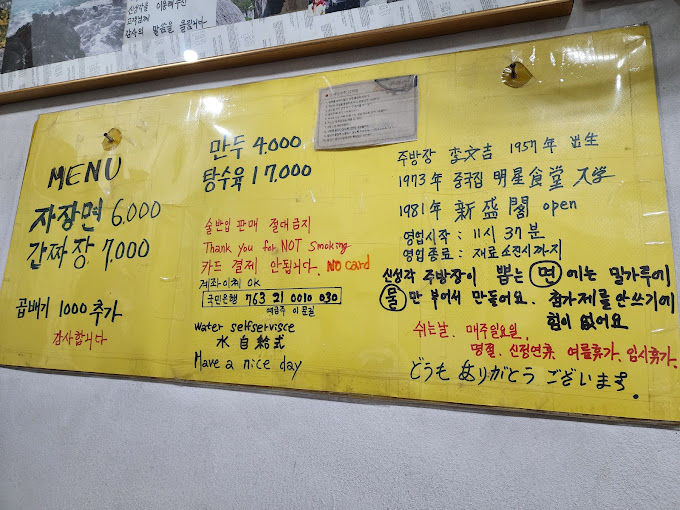 신성각을 이용해주신
고객님께
감사의 말씀을 올립니다
MENU
자장면 6.000
간짜장 7,000
곱배기 1000 추가
감사합니다
만두 4.000
탕수육 17.000
술반입 판매 절대금지
Thank you for NOT Smoking
카드 결제 안됩니다. NO card
계좌이체 OK
국민은행 763 21 0010 030
예금주 이문길
water selfservisce
水 自給式
Have a nice day
주방장 李文吉 1957年 出生
1973年 중국집 明星食堂 入学
1981年 新盛閣 open
영업시작 : 11시 37분
영업종료 : 재료소진시까지
신성각 주방장이 뽑는 면에는 밀가루에
물만 부어서 만들어요. 첨가제를 안쓰기에
힘이 없어요
쉬는날. 매주일요일.
명절. 신정연휴. 여름휴가. 임시휴가.
どうも ありがとう ございます.